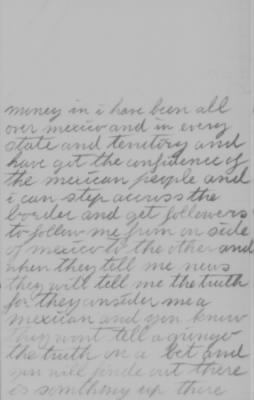 money in i have been all
over mexico and in every
state and teretory and
have got the confidence of
the mexican people and
i can step accross the
border and get followers
to follow me from on side
of mexico to the other and
when they tell me news
they will tell me the truth
for they consider me a
mexican and you know
they wont tell a gringo
the truth on a bet and
you will finde out there
is somthing up there